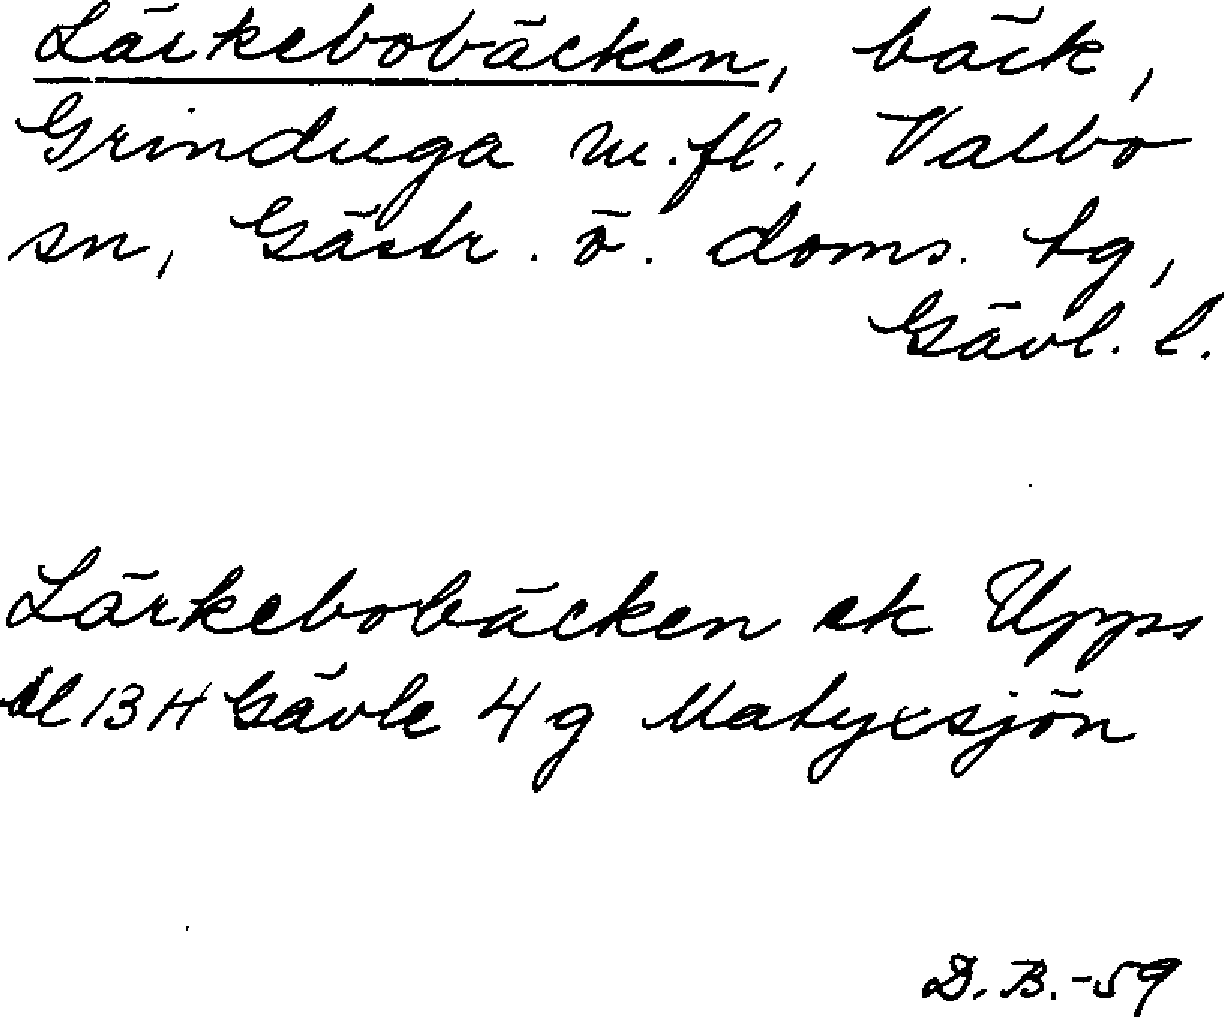 Lärkebobäcken, bäck,
Grinduga m.fl., Valbo
sn, Gästr. ö. doms. tg,
Gävl. l.
Lärkebobäcken ek Upps
bl 13 H Gävle 4 g Matyxsjön
D.B.-59